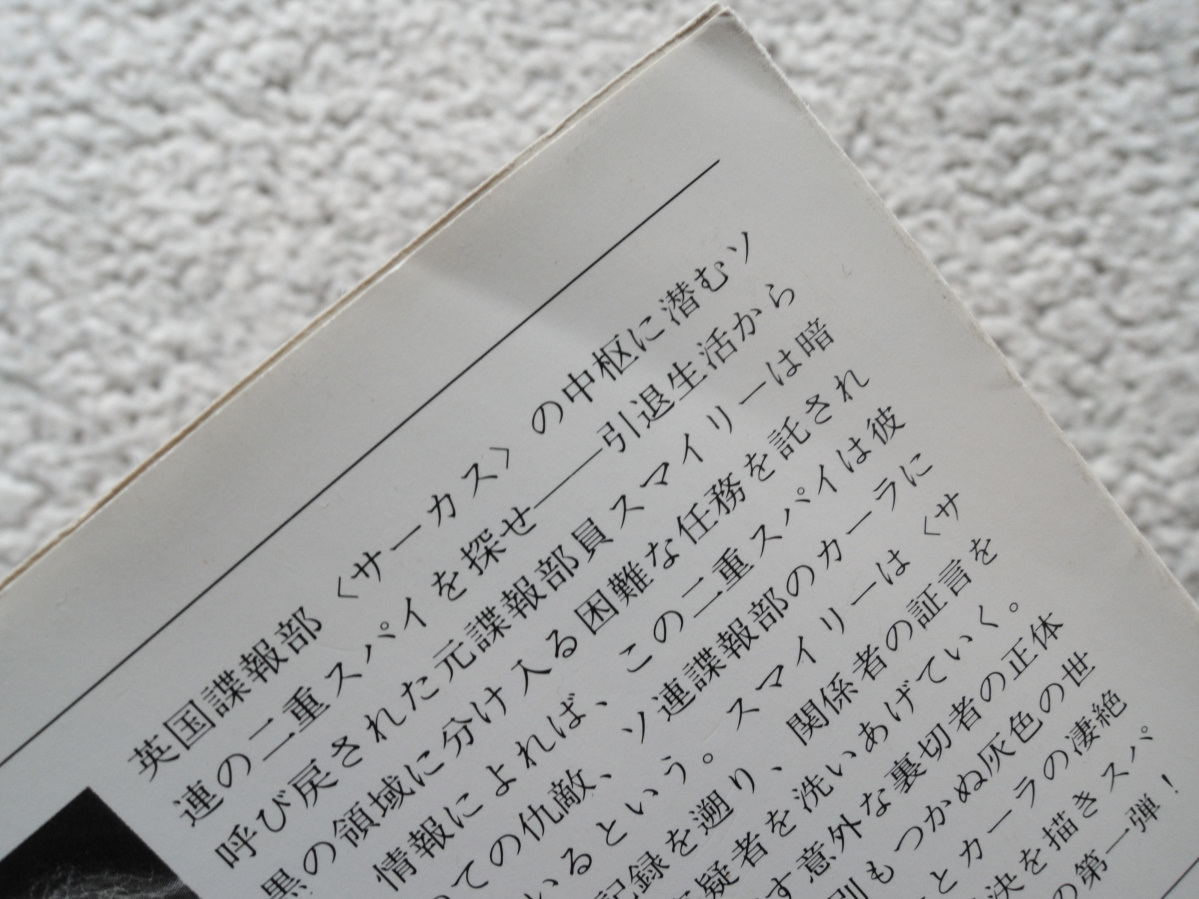 英国諜報部〈サーカス〉の中枢に潜むソ
連の二重スパイを探せ――引退生活から
呼び戻された元諜報部員スマイリーは暗
黒の領域に分け入る困難な任務を託され
情報によれば、この二重スパイは彼
ての仇敵、ソ連諜報部のカーラに
いるという。スマイリーは〈サ
記録を遡り、関係者の証言を
疑者を洗いあげていく。
す意外な裏切者の正体
別もつかぬ灰色の世
とカーラの凄絶
決を描きスパ
の第一弾！